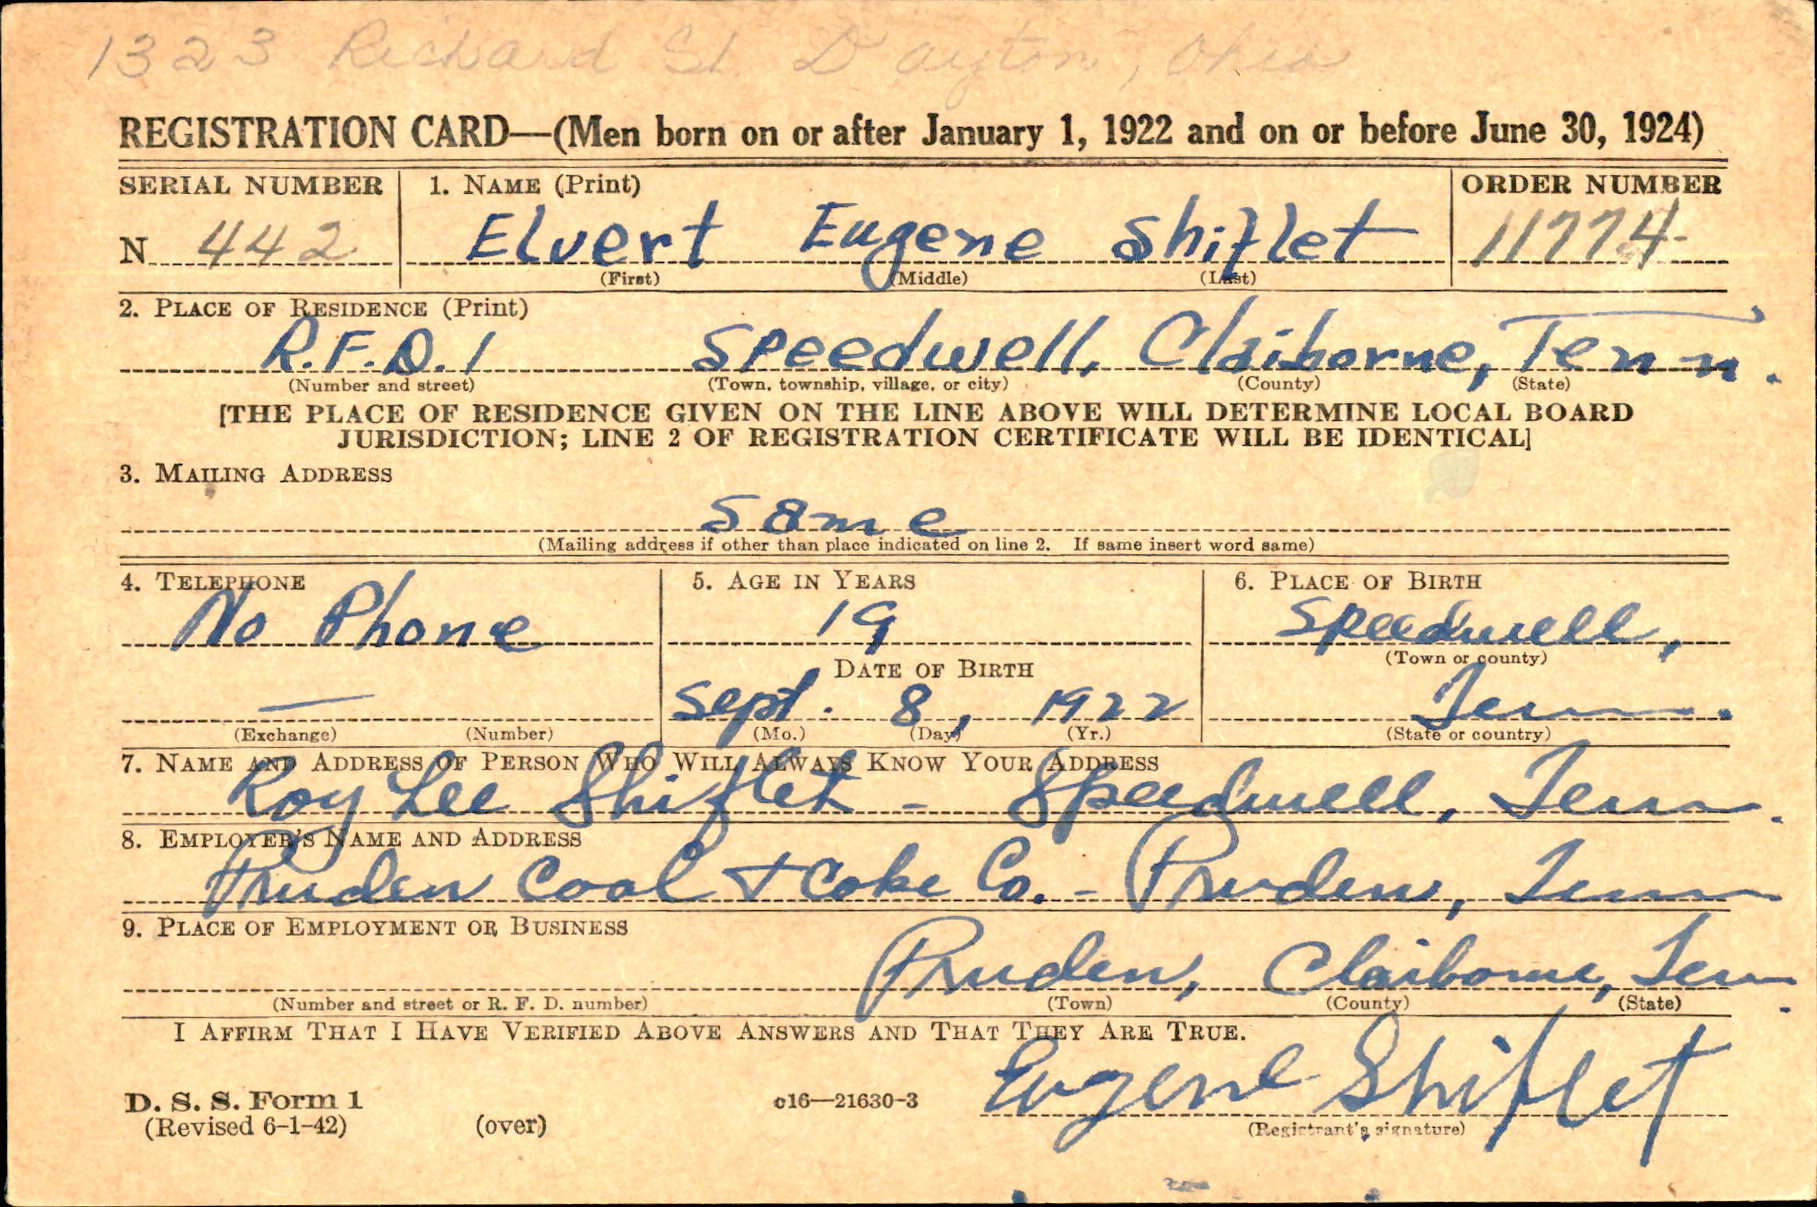 1323 Richard St. Dayton, Ohio
REGISTRATION CARD—(Men born on or after January 1, 1922 and on or before June 30, 1924)
SERIAL NUMBER 1. NAME (Print) ORDER NUMBER
N 442 Elvert Eugene Shiflet 11774
(First) (Middle) (Last)
2. PLACE OF RESIDENCE (Print)
R.F.D. 1 Speedwell, Claiborne, Tenn.
(Number and street) (Town, township, village, or city) (County) (State)
[THE PLACE OF RESIDENCE GIVEN ON THE LINE ABOVE WILL DETERMINE LOCAL BOARD
JURISDICTION; LINE 2 OF REGISTRATION CERTIFICATE WILL BE IDENTICAL]
3. MAILING ADDRESS
Same
(Mailing address if other than place indicated on line 2. If same insert word same)
4. TELEPHONE 5. AGE IN YEARS 6. PLACE OF BIRTH
No Phone 19 Speedwell,
(Town or county)
DATE OF BIRTH
— Sept. 8, 1922 Tenn.
(Exchange) (Number) (Mo.) (Day) (Yr.) (State or country)
7. NAME AND ADDRESS OF PERSON WHO WILL ALWAYS KNOW YOUR ADDRESS
Roy Lee Shiflet - Speedwell, Tenn.
8. EMPLOYER'S NAME AND ADDRESS
Pruden Coal + Coke Co. - Pruden, Tenn
9. PLACE OF EMPLOYMENT OR BUSINESS
Pruden, Claiborne, Tenn.
(Number and street or R. F. D. number) (Town) (County) (State)
I AFFIRM THAT I HAVE VERIFIED ABOVE ANSWERS AND THAT THEY ARE TRUE.
Eugene Shiflet
D. S. S. Form 1 c16—21630-3
(Revised 6-1-42) (over) (Registrant's signature)